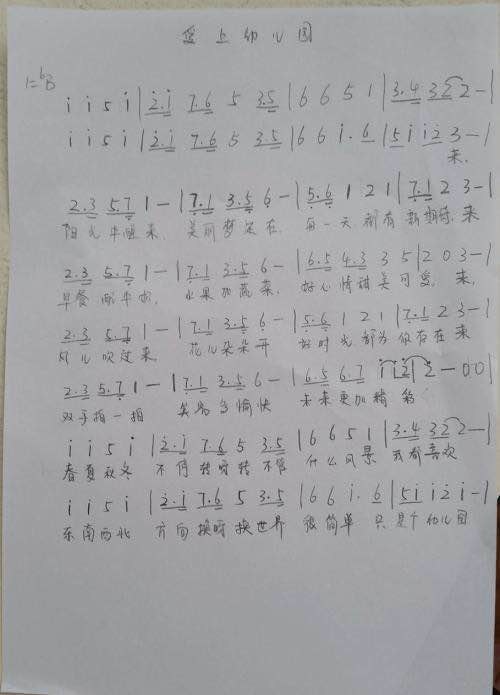 爱上幼儿园
1=ᵇB
i̇ i̇ 5 i̇ | 2̇.i̇ 7.6 5 3.5 | 6 6 5 1 | 3.4 3 2 2 - |
i̇ i̇ 5 i̇ | 2̇.i̇ 7.6 5 3.5 | 6 6 i̇. 6 | 5 i̇ i̇ 2̇ 3 - |
来
2.3 5.7 1 - | 7.1 3.5 6 - | 5.6 1 2 1 | 7.1 2 3 - |
阳光半醒来 美丽梦还在 每一天都有新期待 来
2.3 5.7 1 - | 7.1 3.5 6 - | 6.5 4.3 3 5 | 2 0 3 - |
早餐配牛奶 水果加蔬菜 好心情甜美可爱 来
2.3 5.7 1 - | 7.1 3.5 6 - | 5.6 1 2 1 | 7.1 2 3 - |
风儿吹过来 花儿朵朵开 好时光都为你存在 来
2.3 5.7 1 - | 7.1 3.5 6 - | 6.5 6.7 i̇ i̇ 2̇ | 2̇ - 0 0 |
双手拍一拍 笑容多愉快 未来更加精彩
i̇ i̇ 5 i̇ | 2̇.i̇ 7.6 5 3.5 | 6 6 5 1 | 3.4 3 2 2 - |
春夏秋冬 不停转呀转不停 什么风景 我都喜欢
i̇ i̇ 5 i̇ | 2̇.i̇ 7.6 5 3.5 | 6 6 i̇. 6 | 5 i̇ i̇ 2̇ i̇ - |
东南西北 方向换呀换世界 很简单 只是个幼儿园